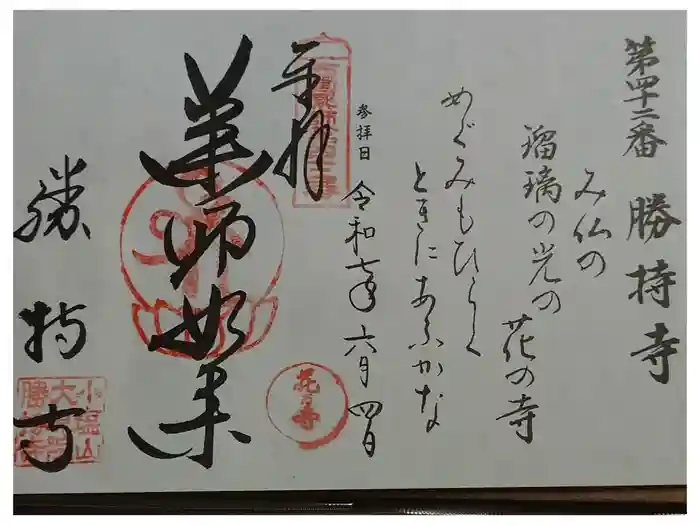 第四十二番 勝持寺
み仏の
瑠璃の光の 花の寺
めぐみもひらく
ときにあふかな
参拝日 令和七年六月四日
奉拝
薬師如来
花の寺
勝持寺
小塩山
大原
勝持寺